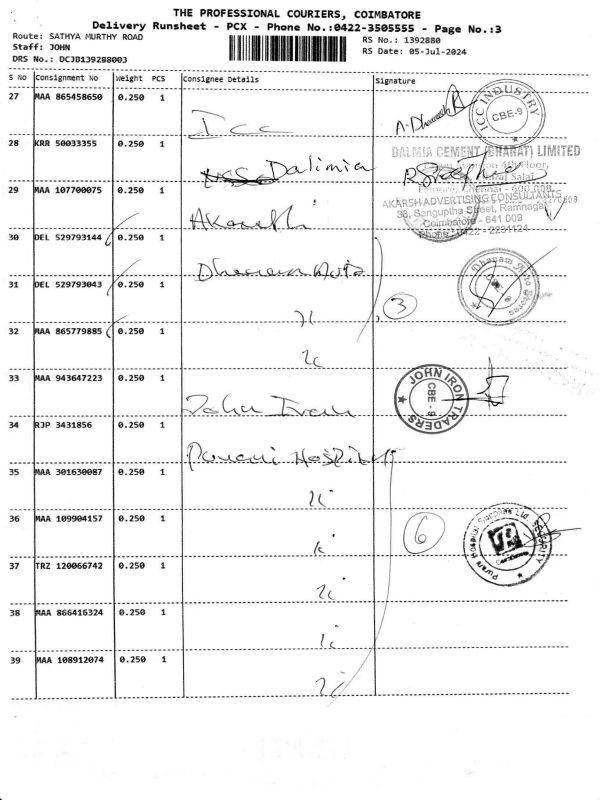 THE PROFESSIONAL COURIERS, COIMBATORE
Delivery Runsheet - PCX - Phone No.:0422-3505555 - Page No.:3
Route: SATHYA MURTHY ROAD
RS No.: 1392880
Staff: JOHN
RS Date: 05-Jul-2024
DRS No.: DCJB139288003
S No Consignment No Weight PCS Consignee Details Signature
27 MAA 865458650 0.250 1
Icc
A. Dhanush
ICC INDUSTRY CBE-9
28 KRR 50033355 0.250 1
Dalimia
DALMIA CEMENT (BHARAT) LIMITED
Floor,
Salai,
Chennai - 600 008
29 MAA 107700075 0.250 1
AKARSH ADVERTISING CONSULTANTS
38, Sanguptha Street, Ramnagar
Coimbatore - 641 009
Phone : 0422 - 2231124
30 DEL 529793144 0.250 1
Dhanam Auto
Dhanam Auto Stores
31 DEL 529793043 0.250 1
3
32 MAA 865779885 0.250 1
33 MAA 943647223 0.250 1
John Iron
JOHN IRON TRADERS CBE - 9
34 RJP 3431856 0.250 1
Hospital
35 MAA 301630087 0.250 1
36 MAA 109904157 0.250 1
6
Purani Hospital Supplies Ltd. SECURITY
37 TRZ 120066742 0.250 1
38 MAA 866416324 0.250 1
39 MAA 108912074 0.250 1